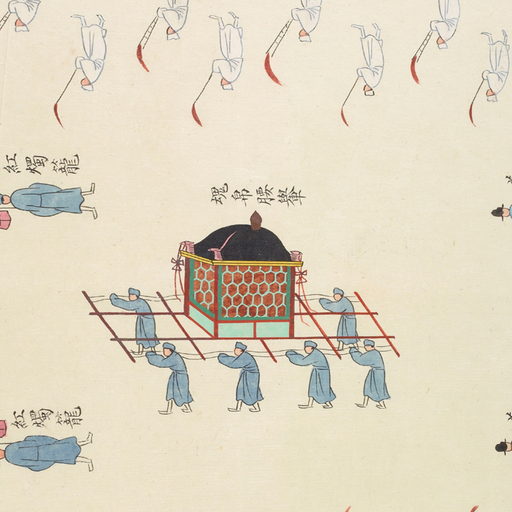 紅燭籠
魂帛腰轝
紅燭籠